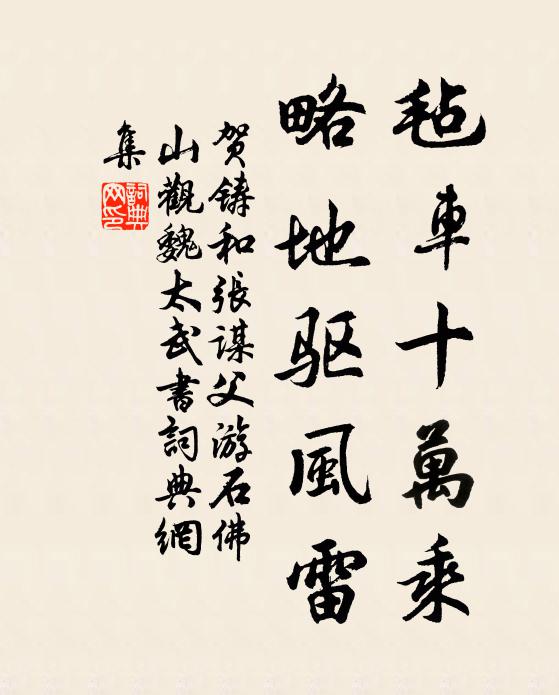 毡車十萬乘
略地驱風雷
贺铸和張谋父游石佛
山觀魏太武書詞典網
集
詞典
网印